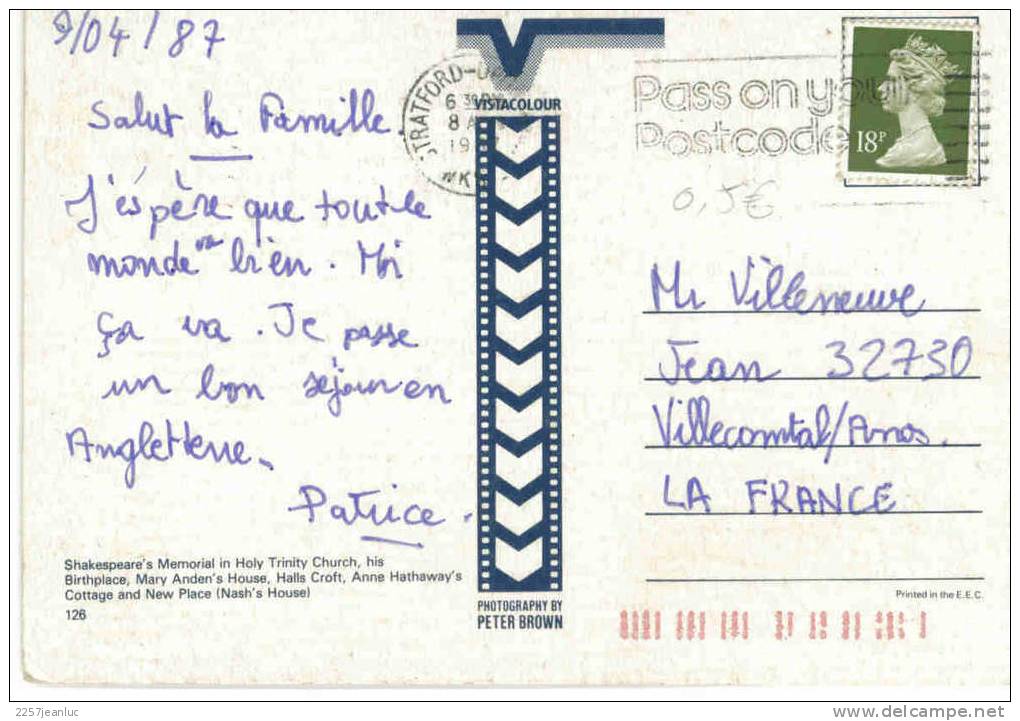 9/04/87
Salut la Famille
J'éspère que tout le
monde va bien. Moi
ça va. Je passe
un bon séjour en
Angleterre.
Patrice.
Shakespeare's Memorial in Holy Trinity Church, his
Birthplace, Mary Anden's House, Halls Croft, Anne Hathaway's
Cottage and New Place (Nash's House)
126
VISTACOLOUR
PHOTOGRAPHY BY
PETER BROWN
STRATFORD-U
6 30PM
8 A
19
WKS
Pass on your
Postcode
18P
0,5€
Mr Villeneuve
Jean 32730
Villecomtal/Arros.
LA FRANCE
Printed in the E.E.C.
2257jeanluc